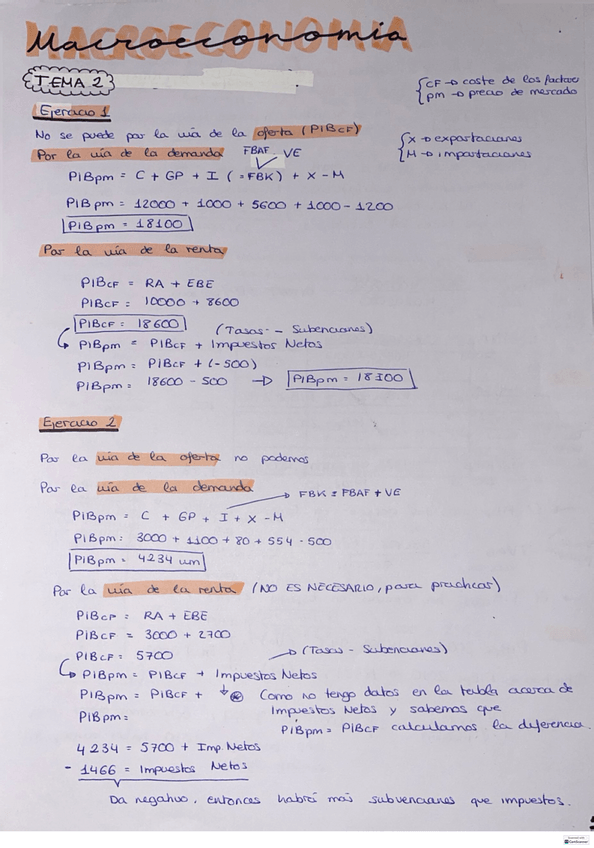 Macroeconomía
MACROECONOMIA
TEMA 2
CF → coste de los factores
pm → precio de mercado
Ejercicio 1
No se puede por la vía de la oferta (PIBCF)
X → exportaciones
M → importaciones
Por la vía de la demanda FBAF VE
PIBpm = C + GP + I (=FBK) + X - M
PIBpm = 12000 + 1000 + 5600 + 1000 - 1200
PIBpm = 18100
Por la vía de la renta
PIBCF = RA + EBE
PIBCF = 10000 + 8600
PIBCF = 18600
(Tasas - Subenciones)
PIBpm = PIBCF + Impuestos Netos
PIBpm = PIBCF + (-500)
PIBpm = 18600 - 500 → PIBpm = 18100
Ejercicio 2
Por la vía de la oferta no podemos
Por la vía de la demanda
FBK = FBAF + VE
PIBpm = C + GP + I + X - M
PIBpm = 3000 + 1100 + 80 + 554 - 500
PIBpm = 4234 um
Por la vía de la renta (NO ES NECESARIO, para practicar)
PIBCF = RA + EBE
PIBCF = 3000 + 2700
PIBCF = 5700
(Tasas - Subenciones)
PIBpm = PIBCF + Impuestos Netos
PIBpm = PIBCF + ↓ Como no tengo datos en la tabla acerca de
PIBpm = Impuestos Netos y sabemos que
PIBpm = PIBCF calculamos la diferencia.
4234 = 5700 + Imp. Netos
- 1466 = Impuestos Netos
Da negativo, entonces habrá más subvenciones que impuestos.
CamScanner